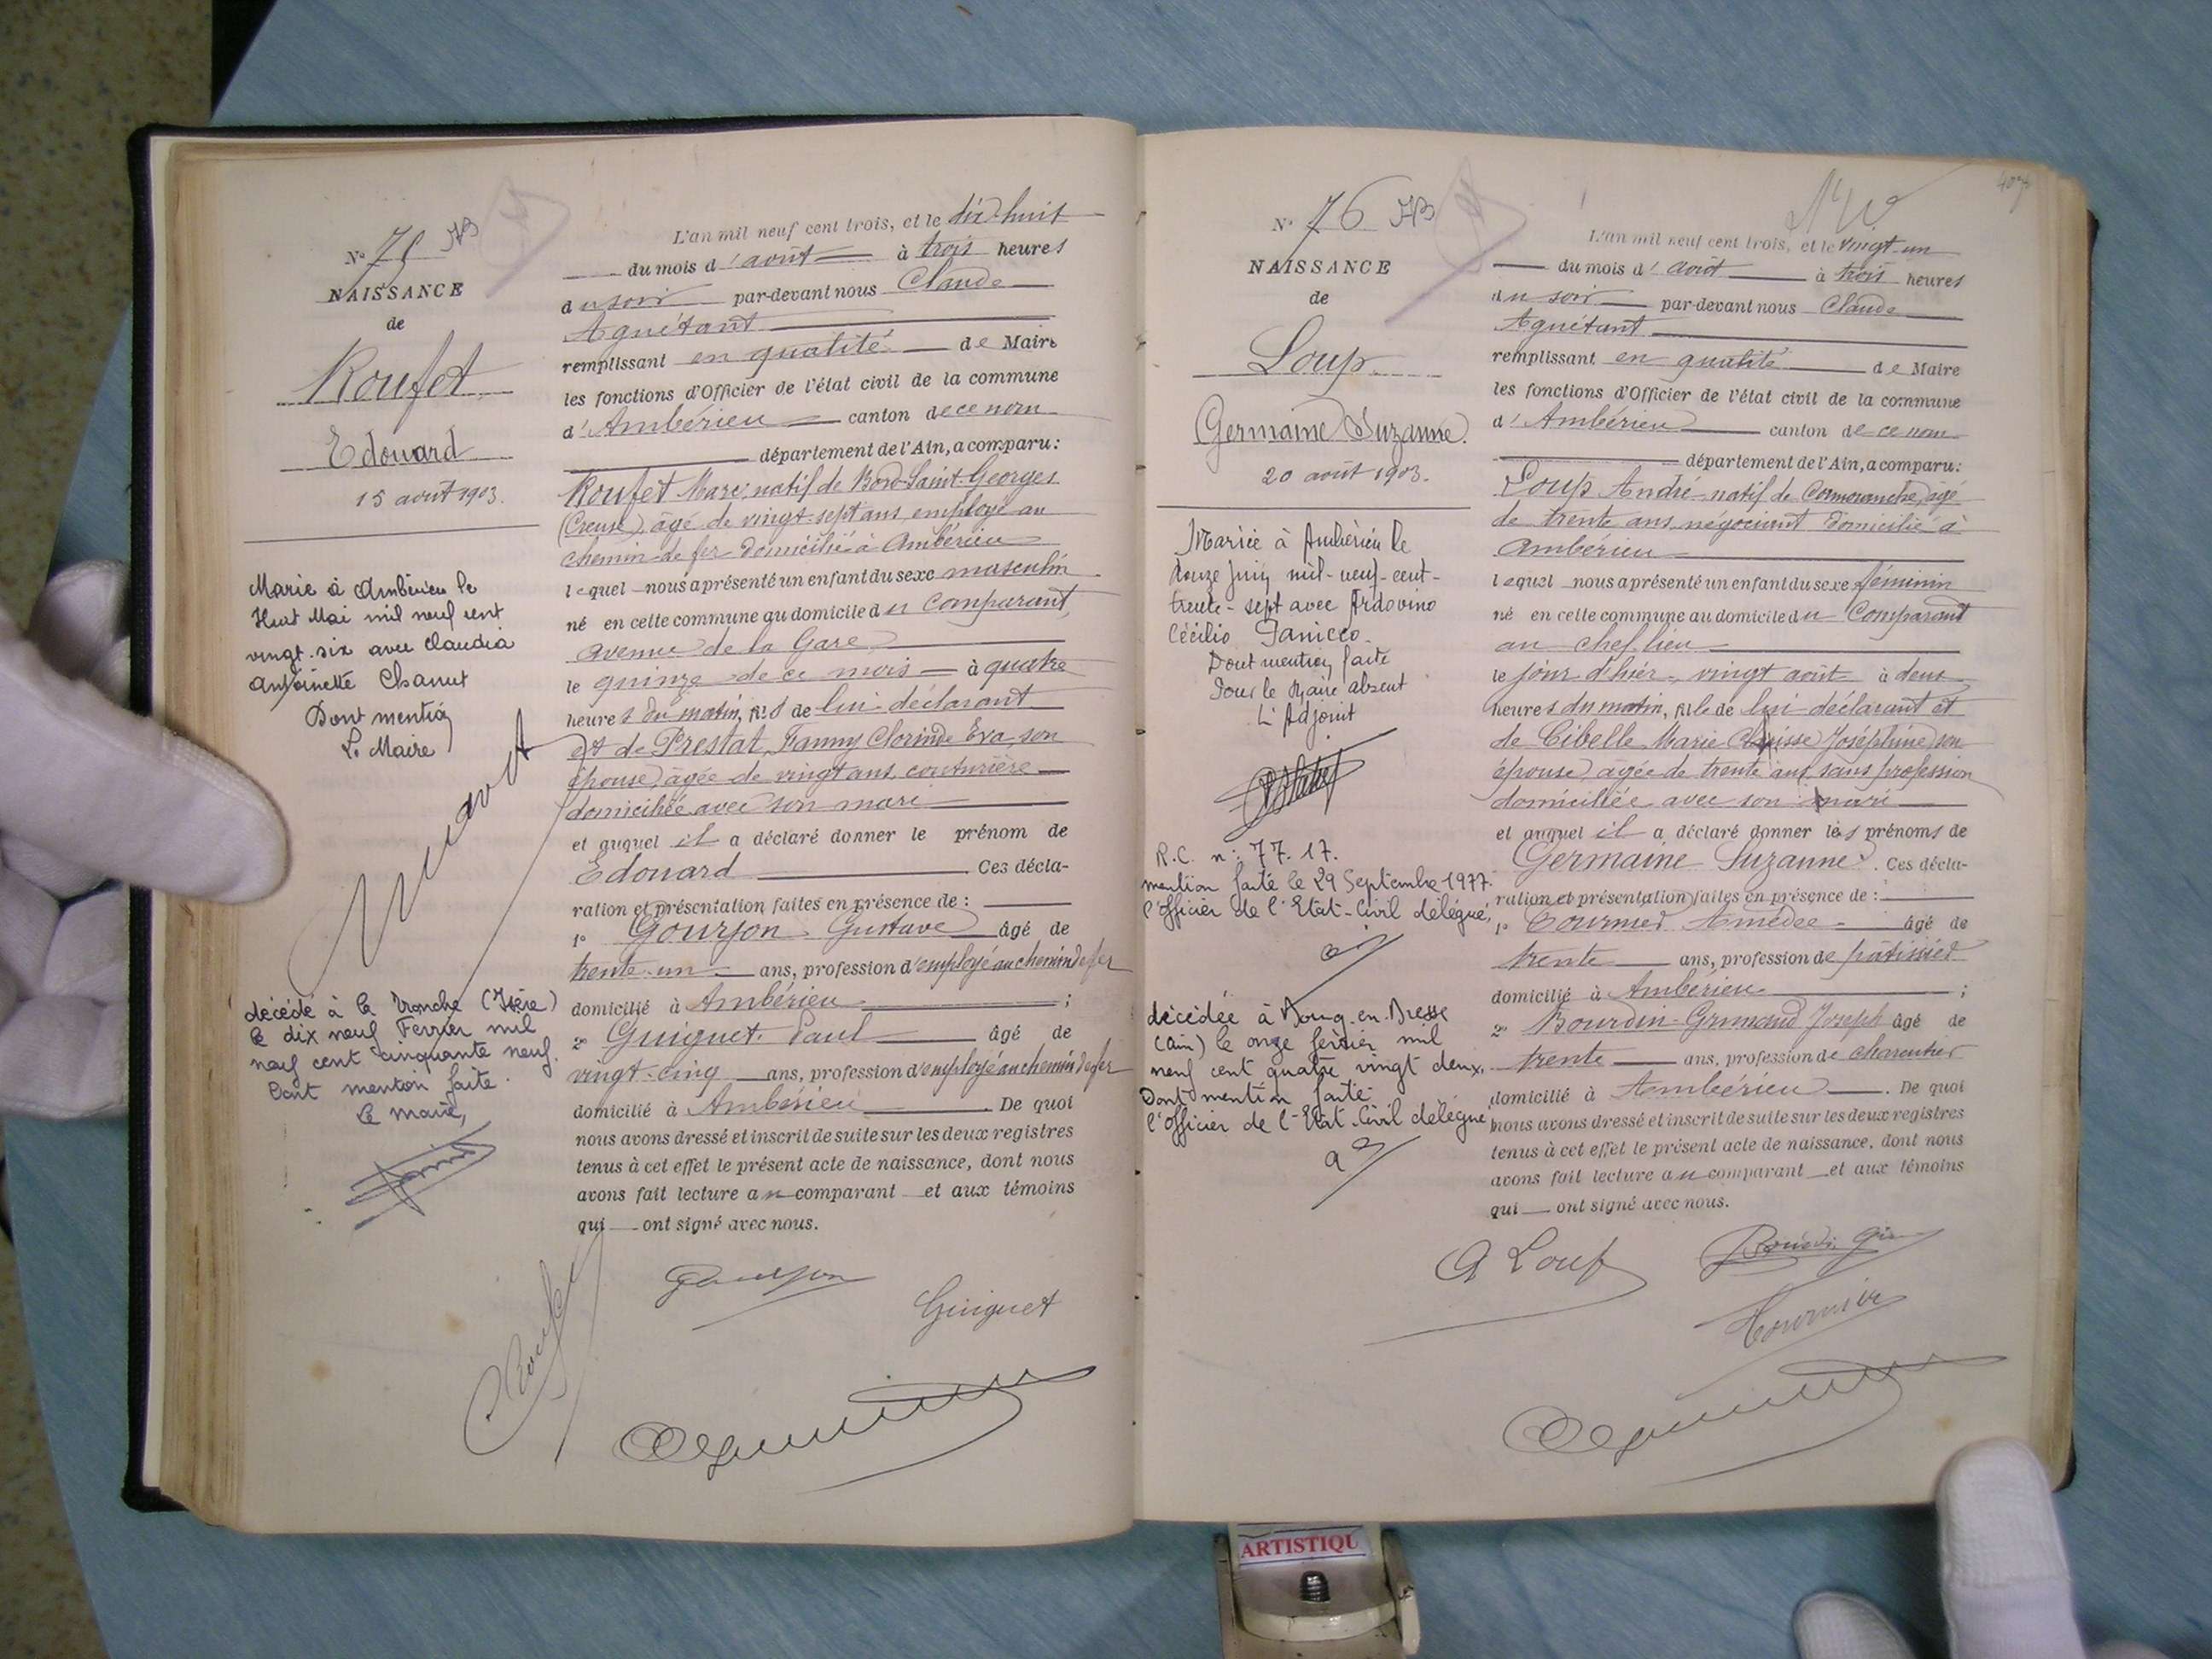 Nº 75
NAISSANCE
de
Roufet
Edouard
15 août 1903.
Marié à Ambérieu le
Huit Mai mil neuf cent
vingt-six avec Claudia
Antoinette Chanut
Dont mention
Le Maire
décédé à la Tronche (Isère)
le dix neuf Février mil
neuf cent cinquante neuf.
Dont mention faite.
Le maire,
L'an mil neuf cent trois, et le dix huit
du mois d'août à trois heures
du soir par-devant nous Claude
Aguétant
remplissant en qualité de Maire
les fonctions d'Officier de l'état civil de la commune
d'Ambérieu canton de ce nom
département de l'Ain, a comparu:
Roufet Marc, natif de Bord-Saint-Georges
(Creuse) âgé de vingt-sept ans, employé au
chemin de fer domicilié à Ambérieu
lequel nous a présenté un enfant du sexe masculin
né en cette commune au domicile du Comparant,
avenue de la Gare
le quinze de ce mois à quatre
heures du matin, fils de lui déclarant
et de Prestat, Fanny Clorinde Eva, son
épouse, âgée de vingt ans, couturière
domiciliée avec son mari
et auquel il a déclaré donner le prénom de
Edouard Ces décla-
ration et présentation faites en présence de :
1º Gourjon Gustave âgé de
trente-un ans, profession d'employé au chemin de fer
domicilié à Ambérieu ;
2º Guiguet Paul âgé de
vingt-cinq ans, profession d'employé au chemin de fer
domicilié à Ambérieu. De quoi
nous avons dressé et inscrit de suite sur les deux registres
tenus à cet effet le présent acte de naissance, dont nous
avons fait lecture au comparant et aux témoins
qui ont signé avec nous.
Roufet
Gourjon
Guiguet
Nº 76
NAISSANCE
de
Loup
Germaine Suzanne.
20 août 1903.
Mariée à Ambérieu le
douze juin mil-neuf-cent-
trente-sept avec Ardovino
Cécilio Panicco
Dont mention faite
Pour le Maire absent
L'Adjoint
R.C. nº: 77.17.
mention faite le 29 Septembre 1977.
l'officier de l'Etat-Civil délégué,
décédée à Bourg-en-Bresse
(Ain) le onze février mil
neuf cent quatre vingt deux.
Dont mention faite
l'officier de l'Etat-Civil délégué,
407
L'an mil neuf cent trois, et le vingt-un
du mois d'août à trois heures
du soir par-devant nous Claude
Aguétant
remplissant en qualité de Maire
les fonctions d'Officier de l'état civil de la commune
d'Ambérieu canton de ce nom
département de l'Ain, a comparu:
Loup André natif de Cormoranche, âgé
de trente ans, négociant domicilié à
Ambérieu
lequel nous a présenté un enfant du sexe féminin
né en cette commune au domicile du Comparant
au chef lieu
le jour d'hier, vingt août à deux
heures du matin, fille de lui déclarant et
de Cibelle Marie Clarisse Joséphine son
épouse, âgée de trente ans, sans profession
domiciliée avec son mari
et auquel il a déclaré donner les prénoms de
Germaine Suzanne. Ces décla-
ration et présentation faites en présence de :
1º Tournier Amédée âgé de
trente ans, profession de pâtissier
domicilié à Ambérieu ;
2º Bourdin-Grimaud Joseph âgé de
trente ans, profession de charcutier
domicilié à Ambérieu. De quoi
nous avons dressé et inscrit de suite sur les deux registres
tenus à cet effet le présent acte de naissance, dont nous
avons fait lecture au comparant et aux témoins
qui ont signé avec nous.
A Loup
Tournier
ARTISTIQU